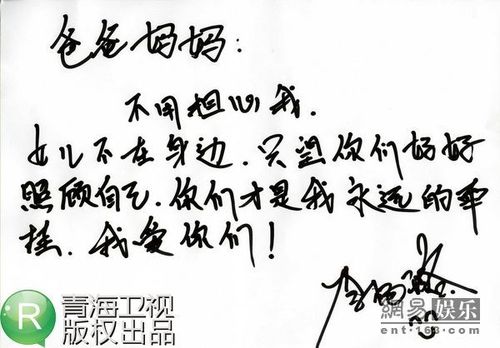 爸爸妈妈：
不用担心我．
女儿不在身边．只望你们好好
照顾自己．你们才是我永远的牵
挂．我爱你们！
R
青海卫视
版权出品
网易 娱乐
ent.163.com